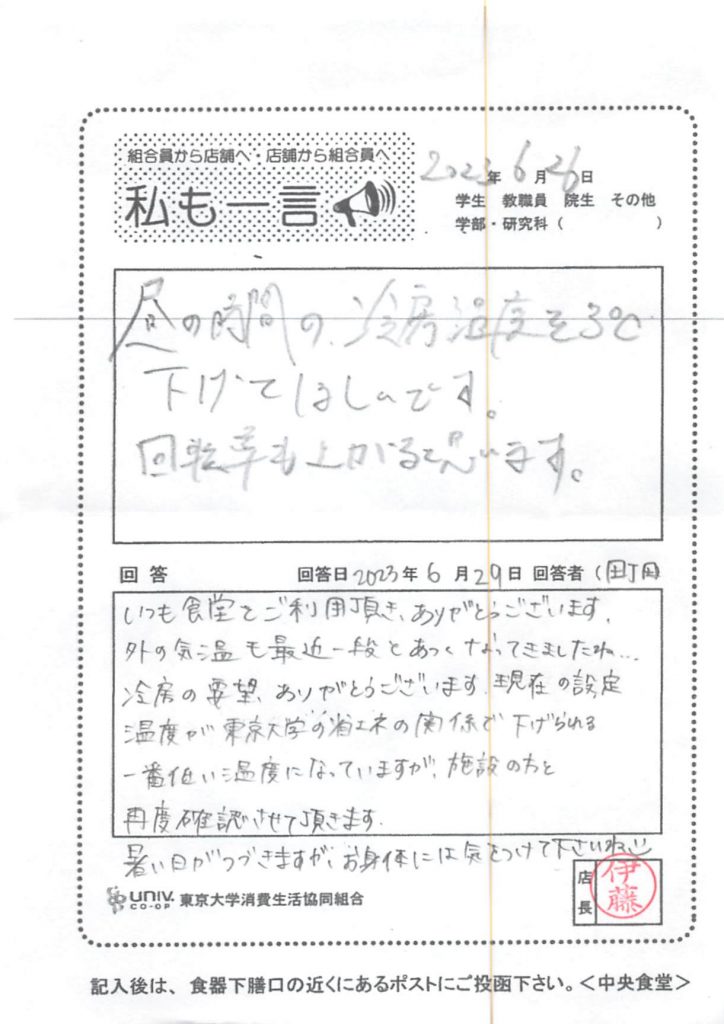 組合員から店舗へ・店舗から組合員へ
私も一言
2023年6月26日
学生 教職員 院生 その他
学部・研究科( )
昼の時間の、冷房温度を3℃
下げてほしいです。
回転率も上がると思います。
回答 回答日2023年6月29日 回答者(町田
いつも食堂をご利用頂き、ありがとうございます。
外の気温も最近一段とあつくなってきましたね…
冷房の要望、ありがとうございます。現在の設定
温度が東京大学の省エネの関係で下げられる
一番低い温度になっていますが、施設の方と
再度確認させて頂きます。
暑い日がつづきますが、お身体には気をつけて下さいね
UNIV. CO-OP 東京大学消費生活協同組合
店長
伊藤
記入後は、食器下膳口の近くにあるポストにご投函下さい。<中央食堂>